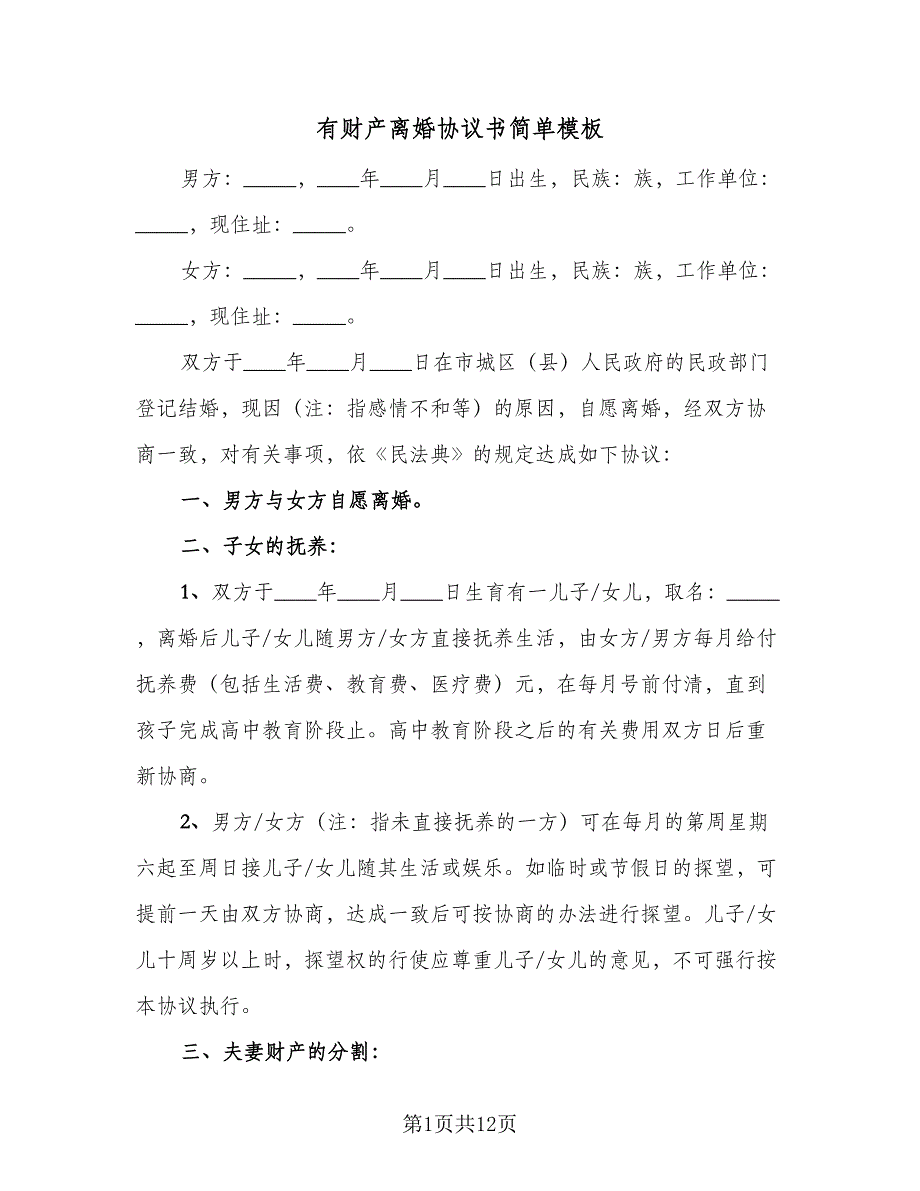 有财产离婚协议书简单模板
男方：_____，____年____月____日出生，民族：族，工作单位：
_____，现住址：_____。
女方：_____，____年____月____日出生，民族：族，工作单位：
_____，现住址：_____。
双方于____年____月____日在市城区（县）人民政府的民政部门
登记结婚，现因（注：指感情不和等）的原因，自愿离婚，经双方协
商一致，对有关事项，依《民法典》的规定达成如下协议：
一、男方与女方自愿离婚。
二、子女的抚养：
1、双方于____年____月____日生育有一儿子/女儿，取名：_____
，离婚后儿子/女儿随男方/女方直接抚养生活，由女方/男方每月给付
抚养费（包括生活费、教育费、医疗费）元，在每月号前付清，直到
孩子完成高中教育阶段止。高中教育阶段之后的有关费用双方日后重
新协商。
2、男方/女方（注：指未直接抚养的一方）可在每月的第周星期
六起至周日接儿子/女儿随其生活或娱乐。如临时或节假日的探望，可
提前一天由双方协商，达成一致后可按协商的办法进行探望。儿子/女
儿十周岁以上时，探望权的行使应尊重儿子/女儿的意见，不可强行按
本协议执行。
三、夫妻财产的分割：
第1页共12页